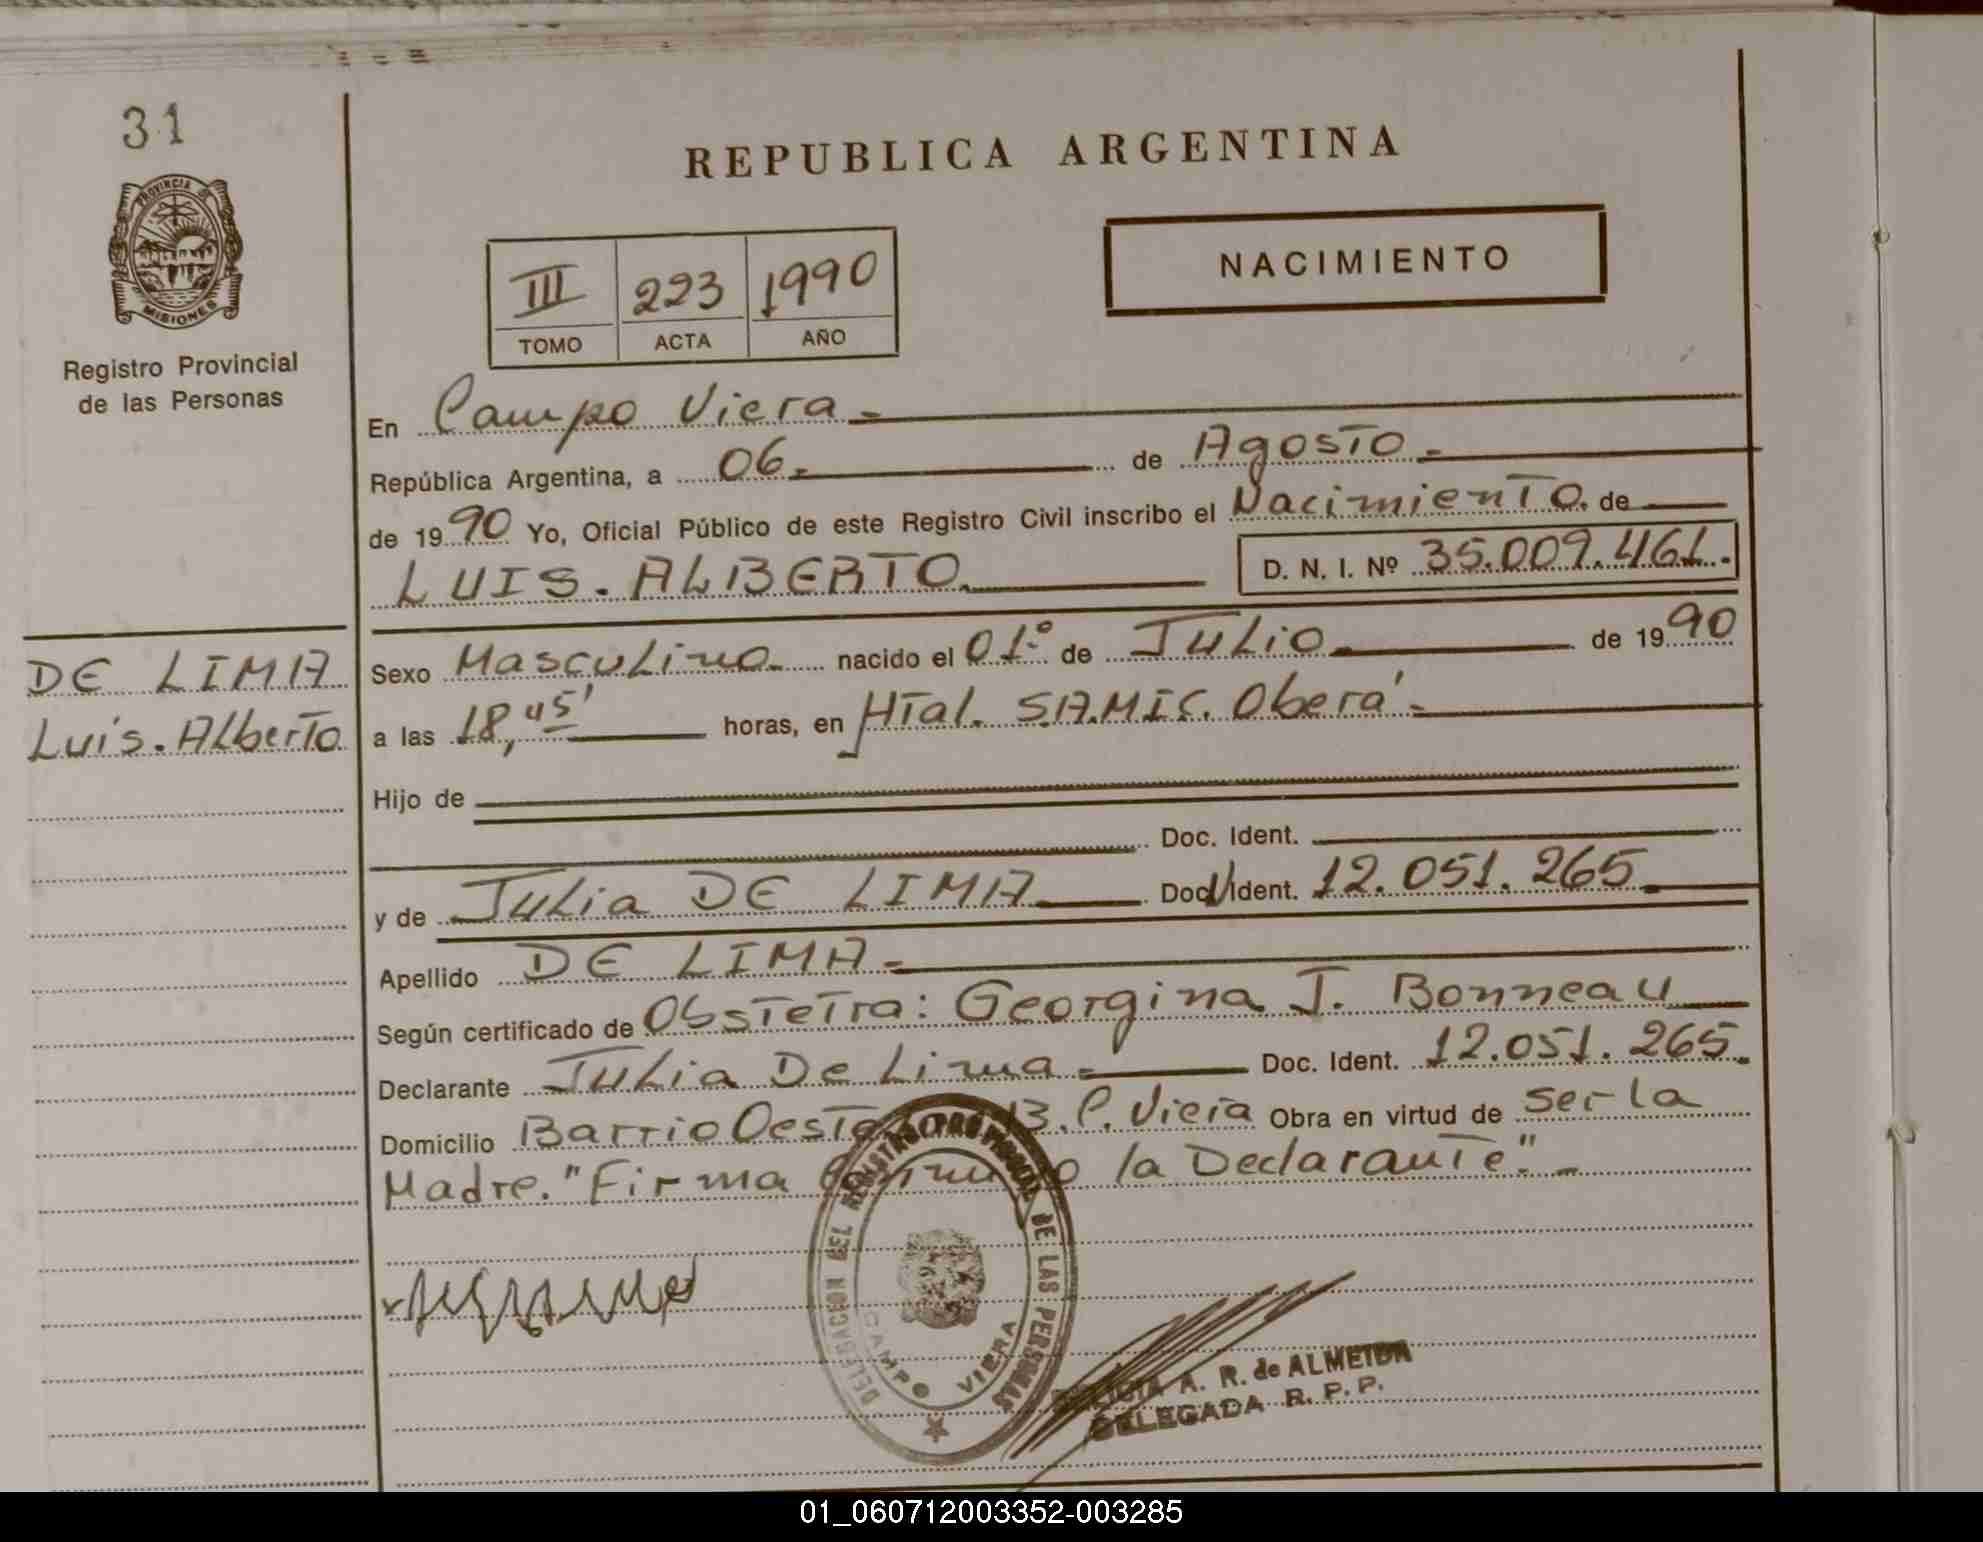 31
PROVINCIA
MISIONES
Registro Provincial
de las Personas
REPUBLICA ARGENTINA
III 223 1990
TOMO ACTA AÑO
NACIMIENTO
En Campo Viera.-
República Argentina, a 06.- de Agosto.-
de 1990 Yo, Oficial Público de este Registro Civil inscribo el Nacimiento. de
LUIS. ALBERTO. D. N. I. Nº 35.009.461.-
DE LIMA
Luis. Alberto
Sexo Masculino nacido el 01.º de Julio.- de 1990
a las 18,45' horas, en Htal. S.A.MIC. Oberá.-
Hijo de
Doc. Ident.
y de Julia DE LIMA Doc. Ident. 12.051.265
Apellido DE LIMA.-
Según certificado de Obstetra: Georgina J. Bonneau
Declarante Julia De Lima.- Doc. Ident. 12.051.265.
Domicilio Barrio Oeste B.C. Viera Obra en virtud de ser la
Madre. "Firma la Declarante".-
DELEGACION DEL REGISTRO PROVINCIAL DE LAS PERSONAS
CAMPO VIERA
A. R. de ALMEIDA
DELEGADA R. P. P.
01_060712003352-003285